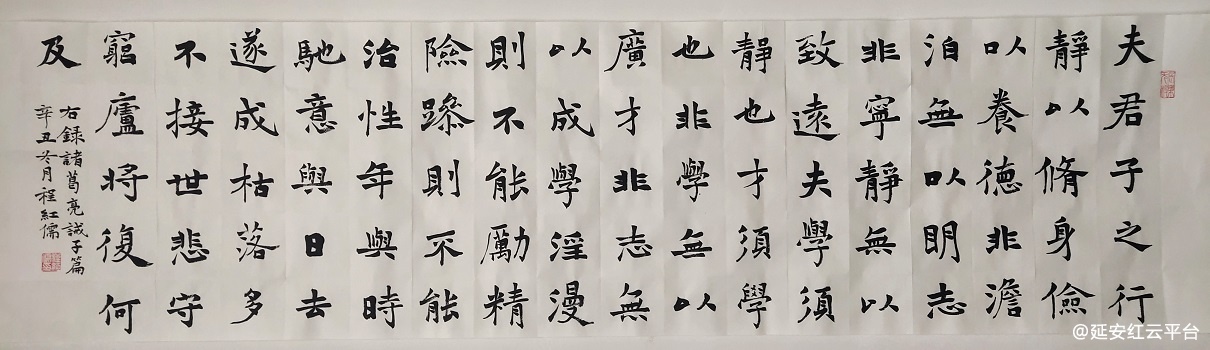 夫君子之行
靜以脩身儉
以養德非澹
泊無以明志
非寧靜無以
致遠夫學須
靜也才須學
也非學無以
廣才非志無
以成學淫漫
則不能勵精
險躁則不能
治性年與時
馳意與日去
遂成枯落多
不接世悲守
窮廬將復何
及
右録諸葛亮誡子篇
辛丑冬月程紅儒
@延安红云平台